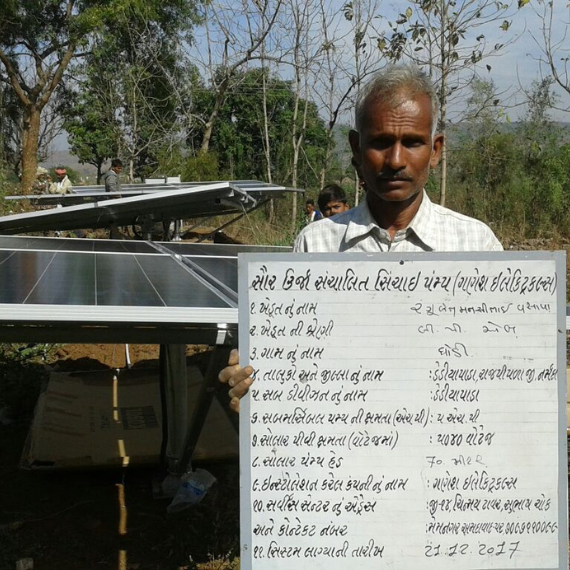 સૌર ઉર્જા સંચાલિત સિંચાઇ પંમ્પ (ગાગેશ ઇલેકિટ્રકલ્સ)
૧. ખેડૂત નું નામ
૨. ખેડૂત ની શ્રેણી બી. પી. એલ
૩. ગામ નું નામ
૪. તાલુકો અને જીલ્લા નું નામ : ડેડીયાપાડા, રાજપીપળા જી. નર્મદા
૫. સબ ડીવીઝન નું નામ : ડેડીયાપાડા
૬. સબમર્સિબલ પમ્પ ની ક્ષમતા (એચ પી) : ૫ એચ પી
૭. સોલાર પીવી ક્ષમતા (વોટેજમાં) : ૫૦૪૦ વોટેજ
૮. સોલાર પંમ્પ હેડ 70. મીટર
૯. ઇન્સ્ટોલેશન કરેલ કંપની નું નામ : ગાગેશ ઇલેકિટ્રકલ્સ
૧૦. સર્વીસ સેન્ટર નું એડ્રેસ : જી-૧૪, ચિન્મય ટાવર, સુભાષ ચોક
અને કોન્ટેકટ નંબર : મેમનગર અમદાવાદ
૧૧. સિસ્ટમ લાગ્યાની તારીખ 21.12.2017